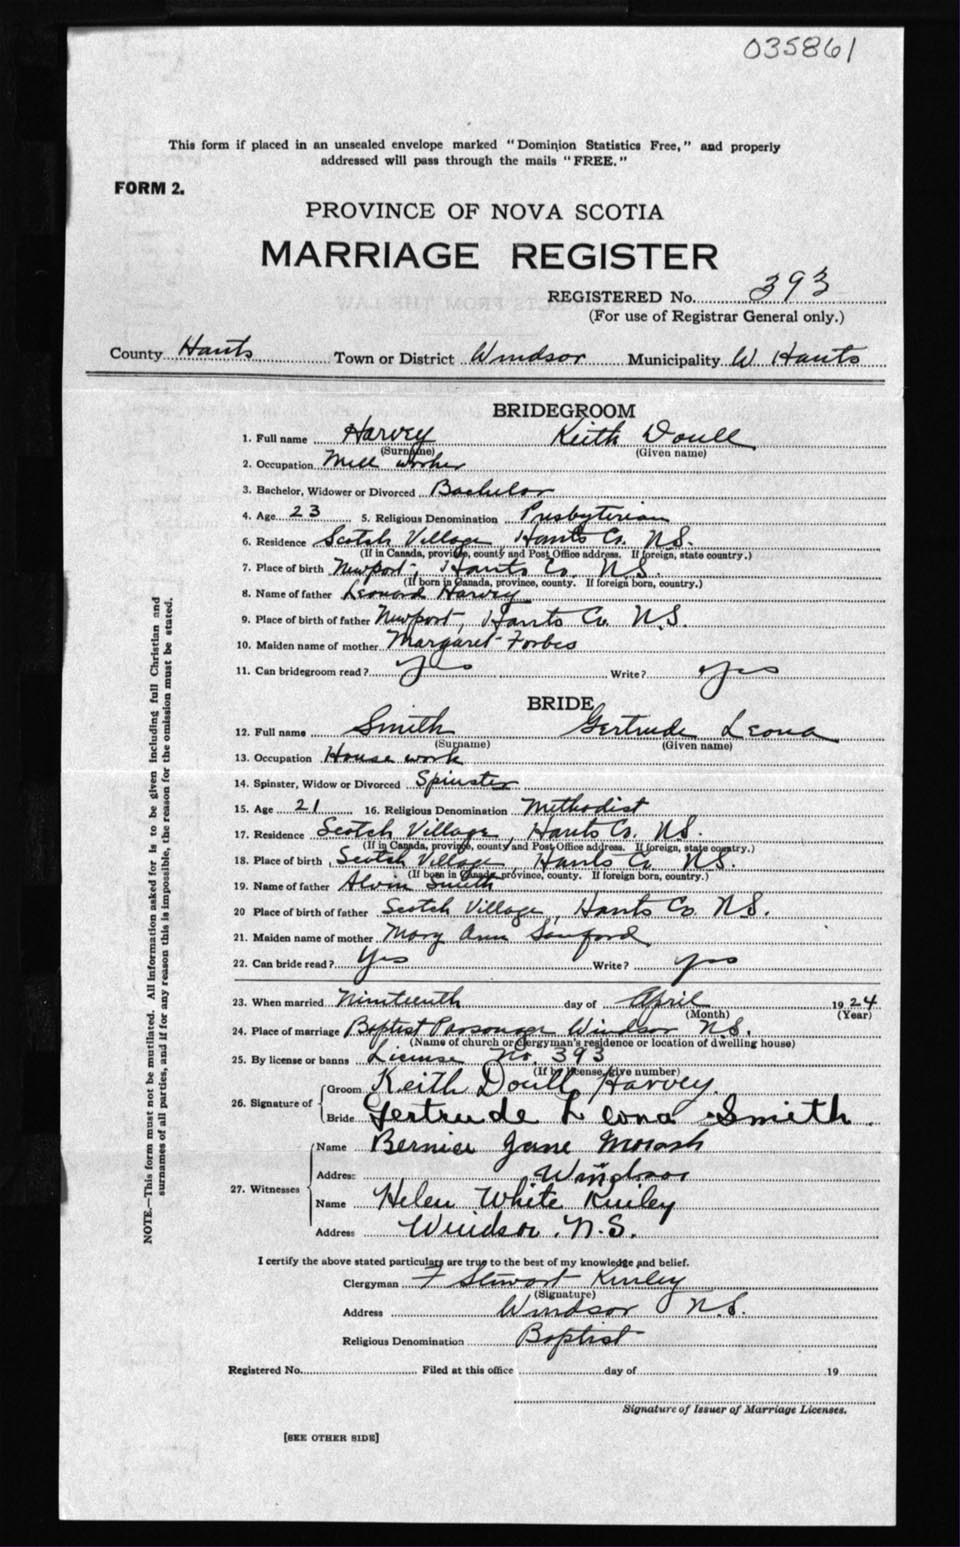 035861
This form if placed in an unsealed envelope marked "Dominion Statistics Free," and properly
addressed will pass through the mails "FREE."
FORM 2.
PROVINCE OF NOVA SCOTIA
MARRIAGE REGISTER
REGISTERED No. 393
(For use of Registrar General only.)
County Hants Town or District Windsor Municipality W. Hants
BRIDEGROOM
1. Full name Harvey Keith Doull
(Surname) (Given name)
2. Occupation Mill worker
3. Bachelor, Widower or Divorced Bachelor
4. Age 23 5. Religious Denomination Presbyterian
6. Residence Scotch Village Hants Co. N.S.
(If in Canada, province, county and Post Office address. If foreign, state country.)
7. Place of birth Newport, Hants Co. N.S.
(If born in Canada, province, county. If foreign born, country.)
8. Name of father Leonard Harvey
9. Place of birth of father Newport, Hants Co. N.S.
10. Maiden name of mother Margaret Forbes
11. Can bridegroom read? yes Write? yes
BRIDE
12. Full name Smith Gertrude Leona
(Surname) (Given name)
13. Occupation House work
14. Spinster, Widow or Divorced Spinster
15. Age 21 16. Religious Denomination Methodist
17. Residence Scotch Village, Hants Co. N.S.
(If in Canada, province, county and Post Office address. If foreign, state country.)
18. Place of birth Scotch Village, Hants Co. N.S.
(If born in Canada, province, county. If foreign born, country.)
19. Name of father Alvin Smith
20 Place of birth of father Scotch Village, Hants Co. N.S.
21. Maiden name of mother Mary Ann Sanford
22. Can bride read? Yes Write? yes
23. When married Nineteenth day of April 1924
(Month) (Year)
24. Place of marriage Baptist Parsonage Windsor N.S.
(Name of church or clergyman's residence or location of dwelling house)
25. By license or banns License No. 393
(If by license, give number)
26. Signature of Groom Keith Doull Harvey.
Bride Gertrude Leona Smith.
27. Witnesses Name Bernice Jane Morash
Address Windsor
Name Helen White Kinley
Address Windsor, N.S.
I certify the above stated particulars are true to the best of my knowledge and belief.
Clergyman F Stewart Kinley
(Signature)
Address Windsor N.S.
Religious Denomination Baptist
Registered No. Filed at this office day of 19
Signature of Issuer of Marriage Licenses.
[SEE OTHER SIDE]
NOTE.—This form must not be mutilated. All information asked for is to be given including full Christian and
surnames of all parties, and if for any reason this is impossible, the reason for the omission must be stated.